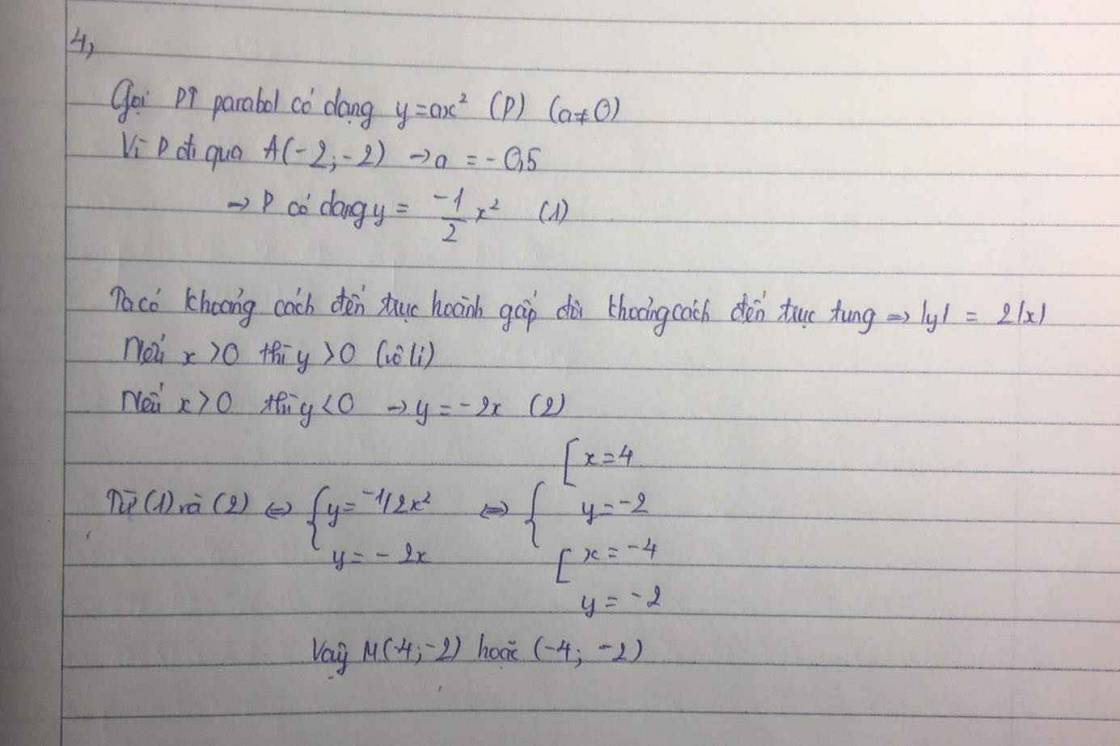 4,
Gọi PT parabol có dạng y=ax² (P) (a≠0)
Vì P đi qua A(-2;-2) → a = -0,5
→ P có dạng y = -1/2 x² (1)
Ta có khoảng cách đến trục hoành gấp đôi khoảng cách đến trục tung => |y| = 2|x|
Nếu x>0 thì y>0 (vô lí)
Nếu x>0 thì y<0 → y=-2x (2)
[x=4
Từ (1) và (2) <=> { y=-1/2x² <=> { y=-2
y=-2x [x=-4
y=-2
Vậy M(4;-2) hoặc (-4; -2)